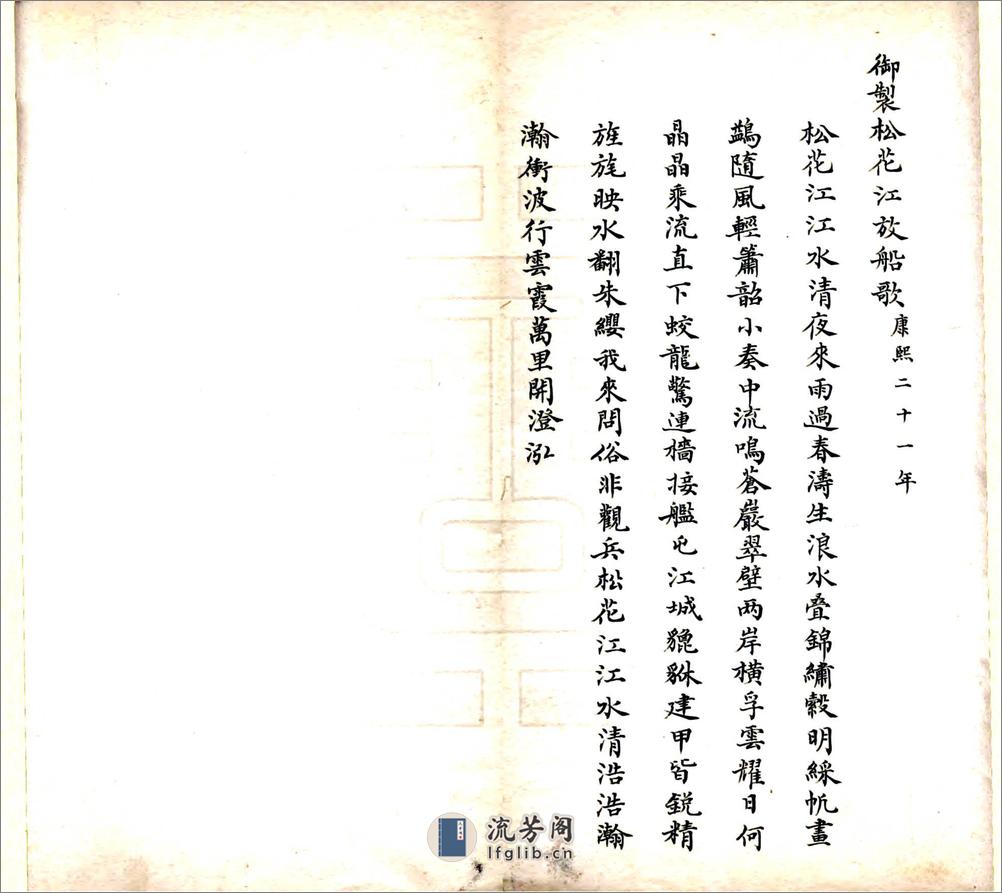 御製松花江放船歌 康熙二十一年
松花江江水清夜來雨過春濤生浪水疊錦繡縠明綵帆畫
鷁隨風輕簫韶小奏中流鳴蒼巖翠壁两岸橫孚雲耀日何
晶晶乘流直下蛟龍驚連檣接艦屯江城貔貅建甲皆銳精
旌旄映水翻朱纓我來問俗非觀兵松花江江水清浩浩瀚
瀚衝波行雲霞萬里開澄泓
流芳阁
lfglib.cn